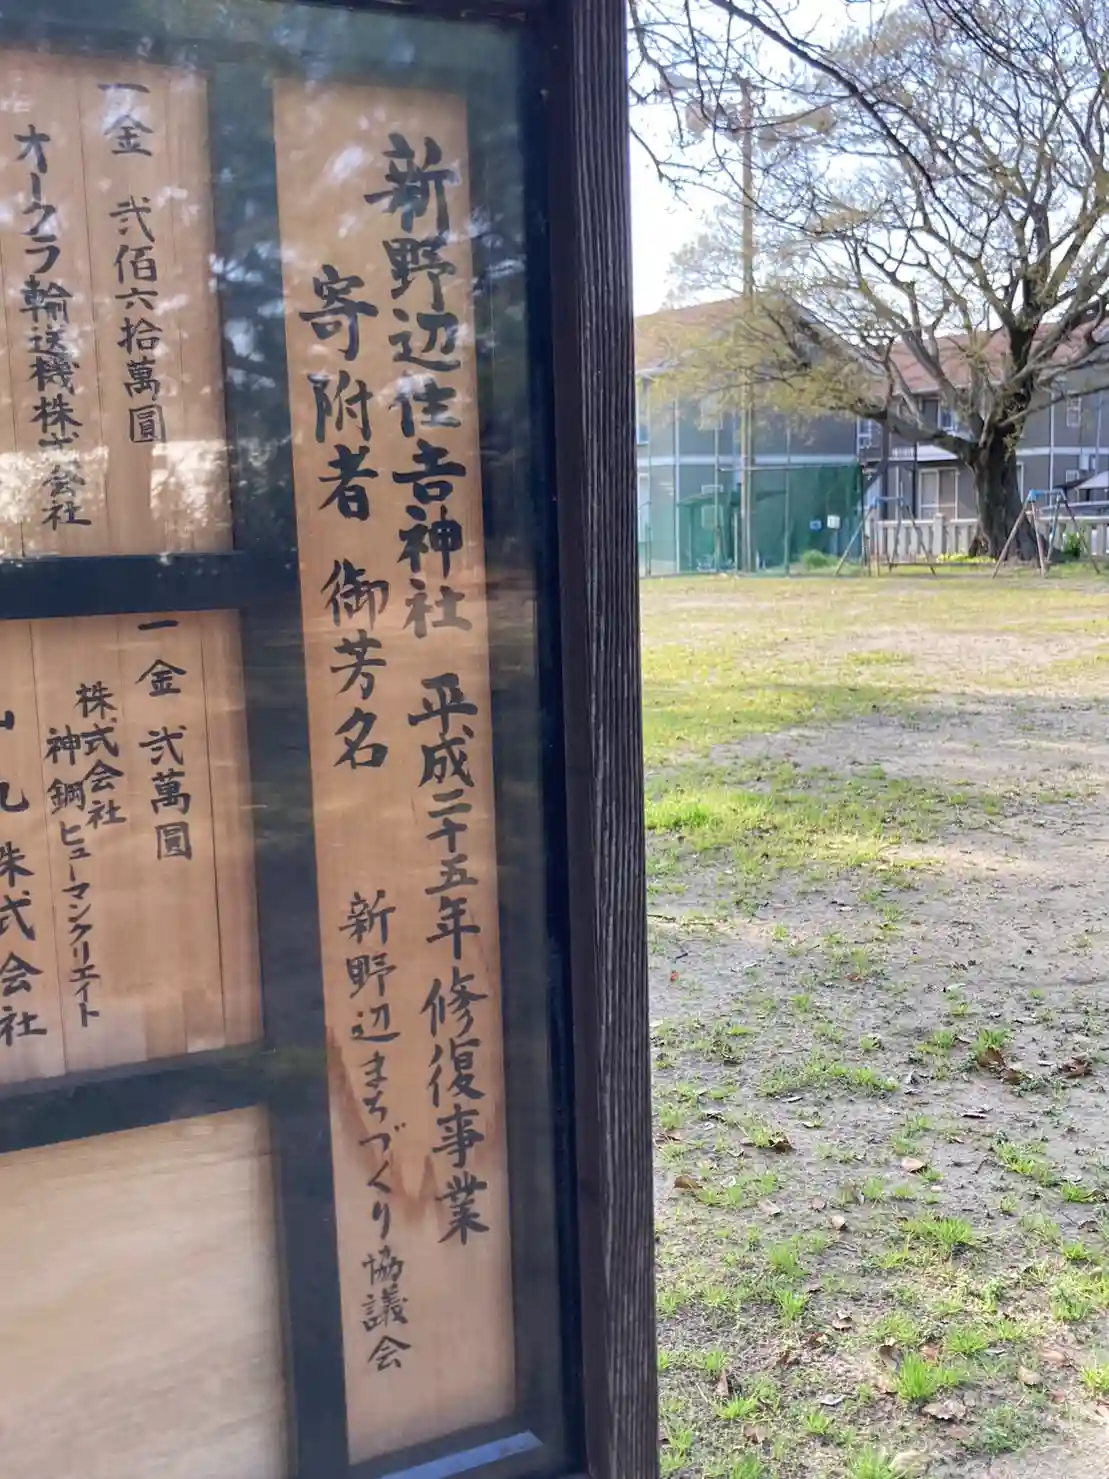 新野辺住吉神社 平成二十五年 修復事業
寄附者 御芳名 新野辺まちづくり協議会
一金 弐佰六拾萬圓
オークラ輸送機株式会社
一金 弐萬圓
株式会社
神鋼ヒューマンクリエイト
株式会社